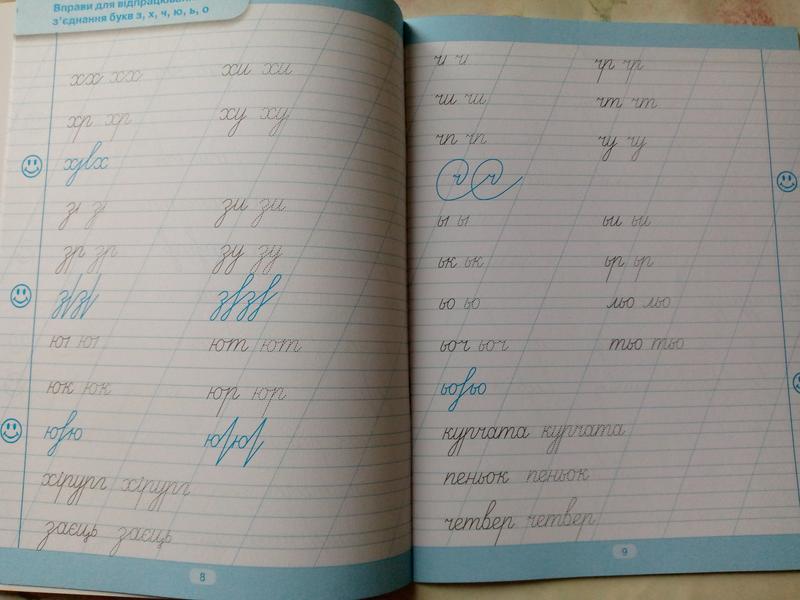 Вправи для відпрацювання
з'єднання букв з, х, ч, ю, ь, о
хх хх хи хи
хр хр ху ху
зи зи
зр зр зу зу
ют ют
юк юк юр юр
хірург хірург
заєць заєць
8
чр чр
чи чи чт чт
чп чп чу чу
ьи ьи
ьк ьк ьр ьр
ьо ьо льо льо
ьоч ьоч тьо тьо
курчата курчата
пеньок пеньок
четвер четвер
9